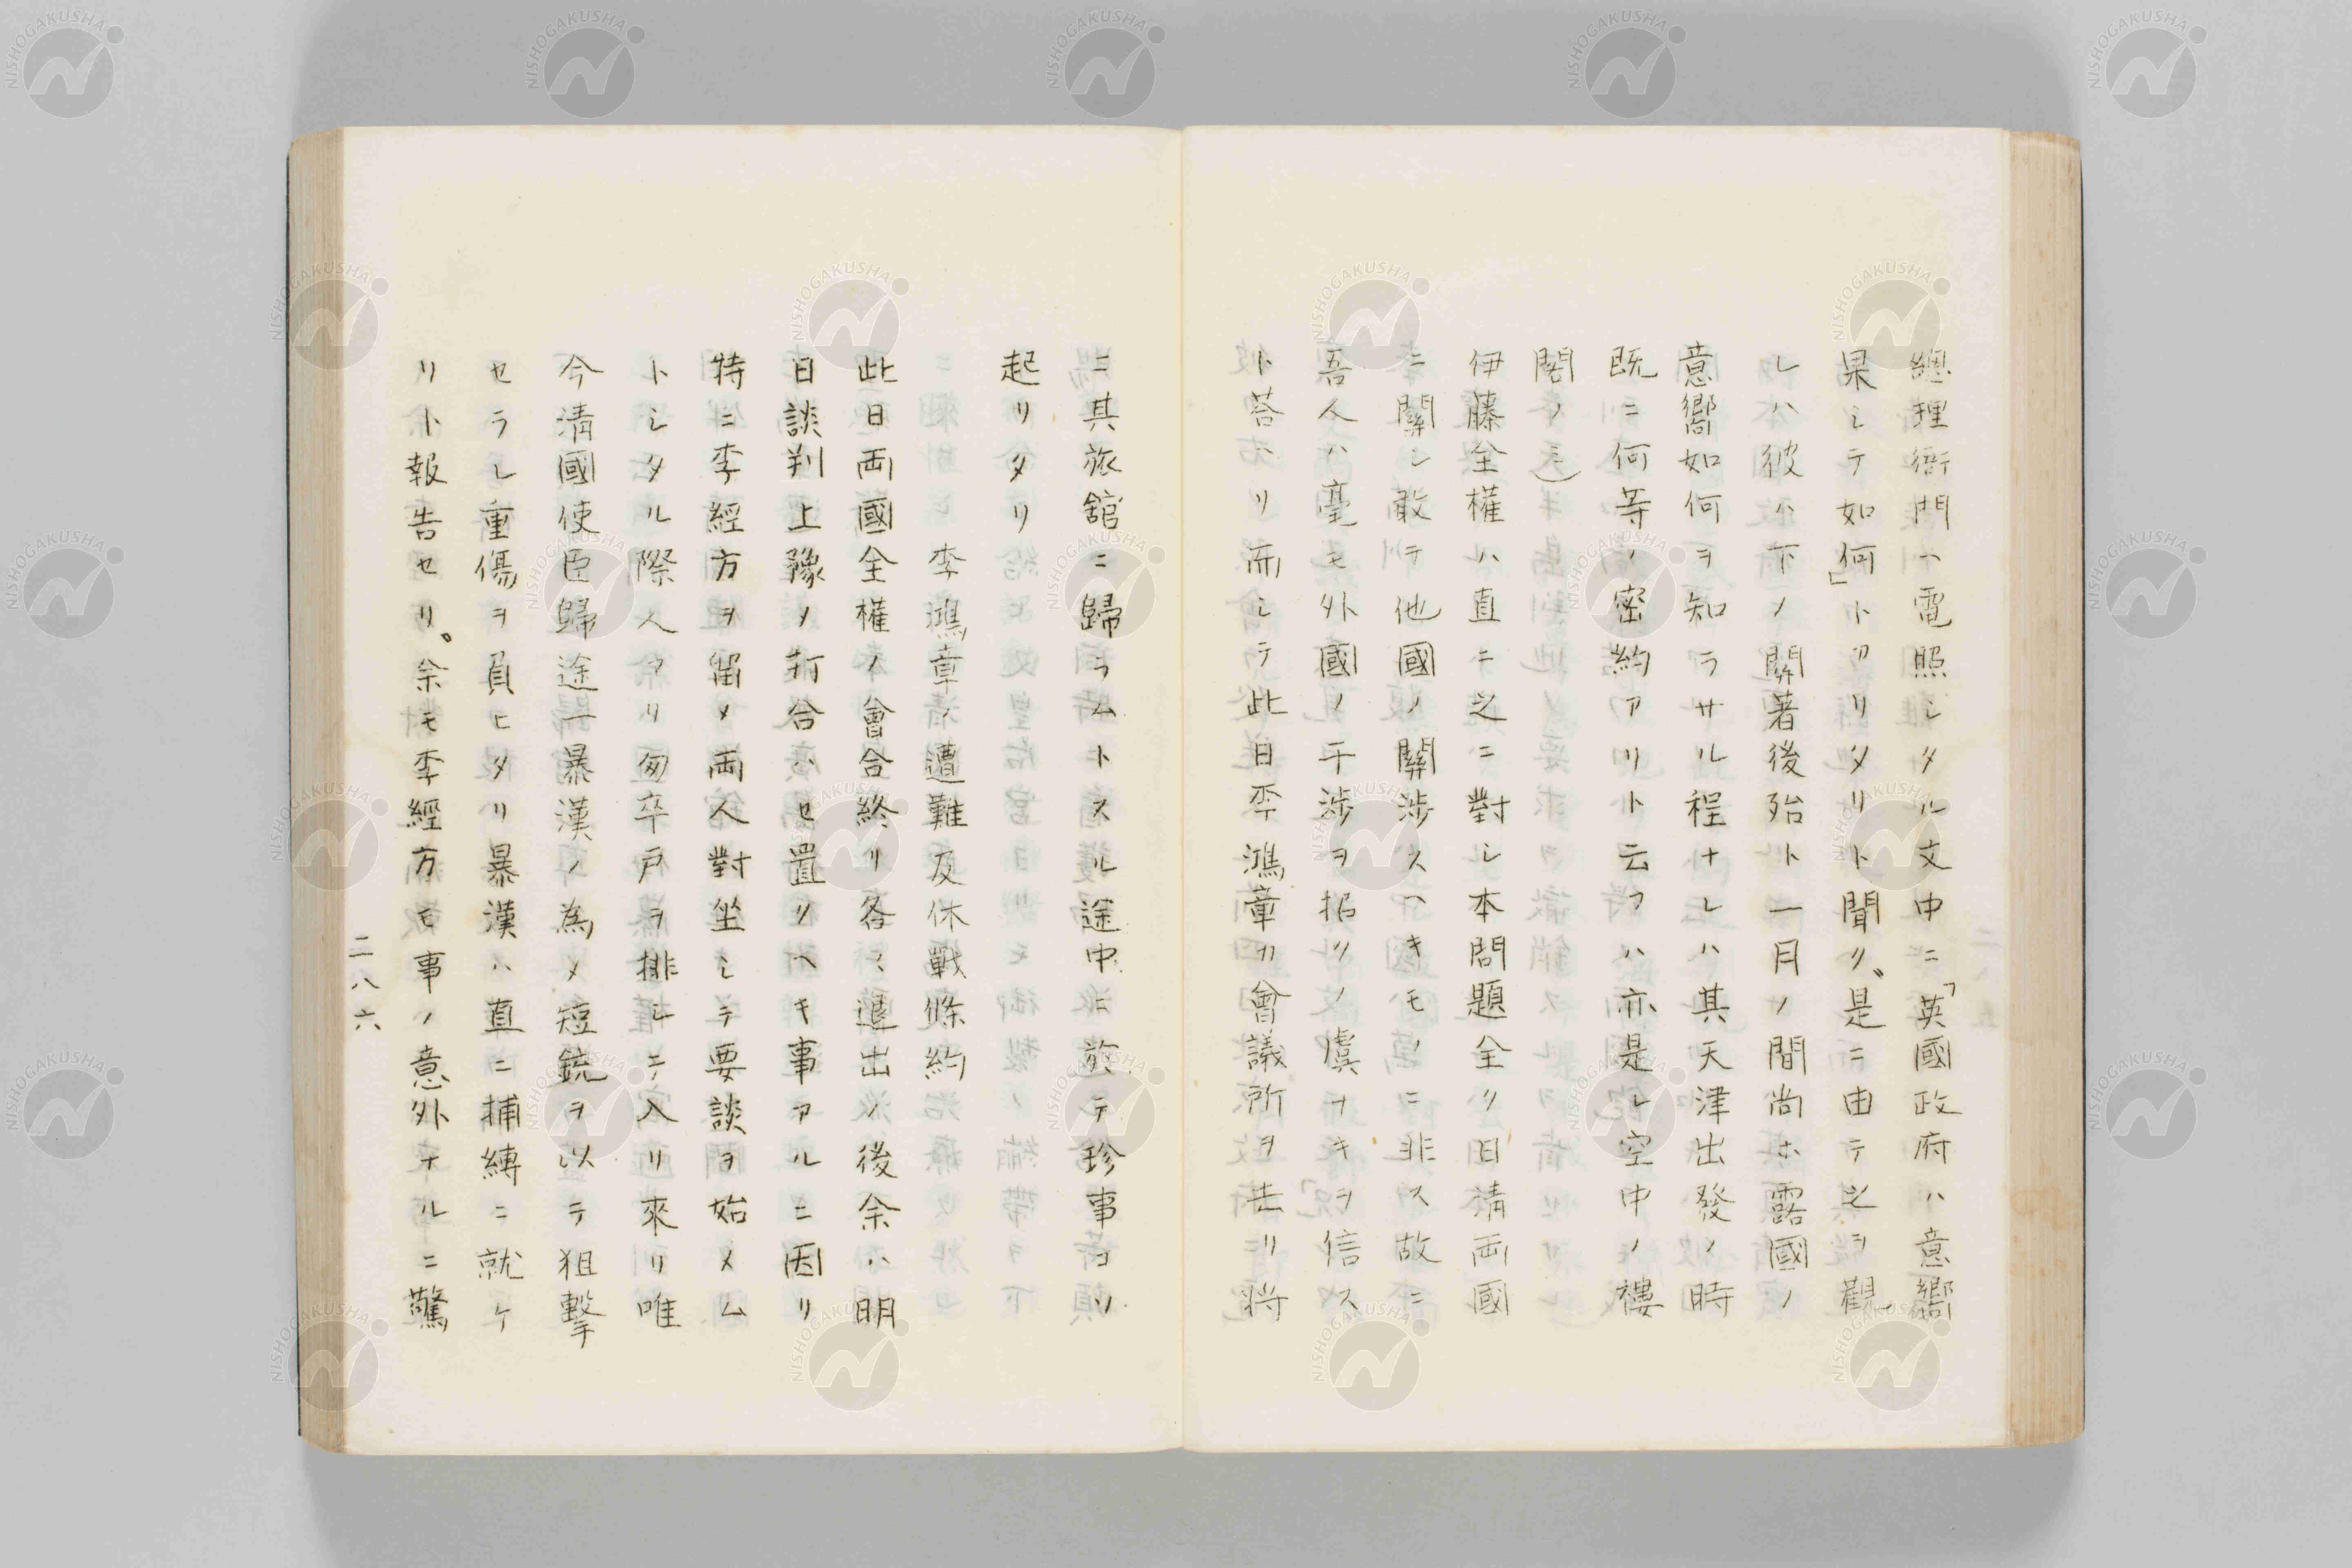 總理衙門ヘ電照シタル文中ニ「英國政府ハ意嚮
果シテ如何」トアリタリト聞ク。是ニ由テ之ヲ觀
レハ彼ハ下ノ關著後殆ト一月ノ間尚ホ露國ノ
意嚮如何ヲ知ラサル程ナレハ其天津出發ノ時
既ニ何等ノ密約アリト云フハ亦是レ空中ノ樓
閣ノミ)
伊藤全權ハ直ニ之ニ對シ本問題全ク日清両國
ニ關シ敢テ他國ノ關涉スヘキモノニ非ス故ニ
吾人ハ毫モ外國ノ干涉ヲ招クノ虞ナキヲ信ス
ト荅ヘリ而シテ此日李鴻章カ會議所ヲ去リ將
ニ其旅舘ニ歸ラムトスル途中ニ於テ珍事ヨリ
起リタリ
李鴻章ノ遭難及休戰條約
此日両國全權ノ會合終リ各〻退出ノ後余ハ明
日談判上豫ノ打合ハセ置クヘキ事アルニ因リ
特ニ李經方ヲ留メ両人對坐シテ要談ヲ始メム
トシタル際人アリ匆卒戸ヲ排シテ入リ來リ唯
今清國使臣歸途一暴漢ノ為メ短銃ヲ以テ狙擊
セラレ重傷ヲ負ヒタリ暴漢ハ直ニ捕縛ニ就ケ
リト報告セリ。余モ李經方モ事ノ意外ナルニ驚
二八六
NISHOGAKUSHA